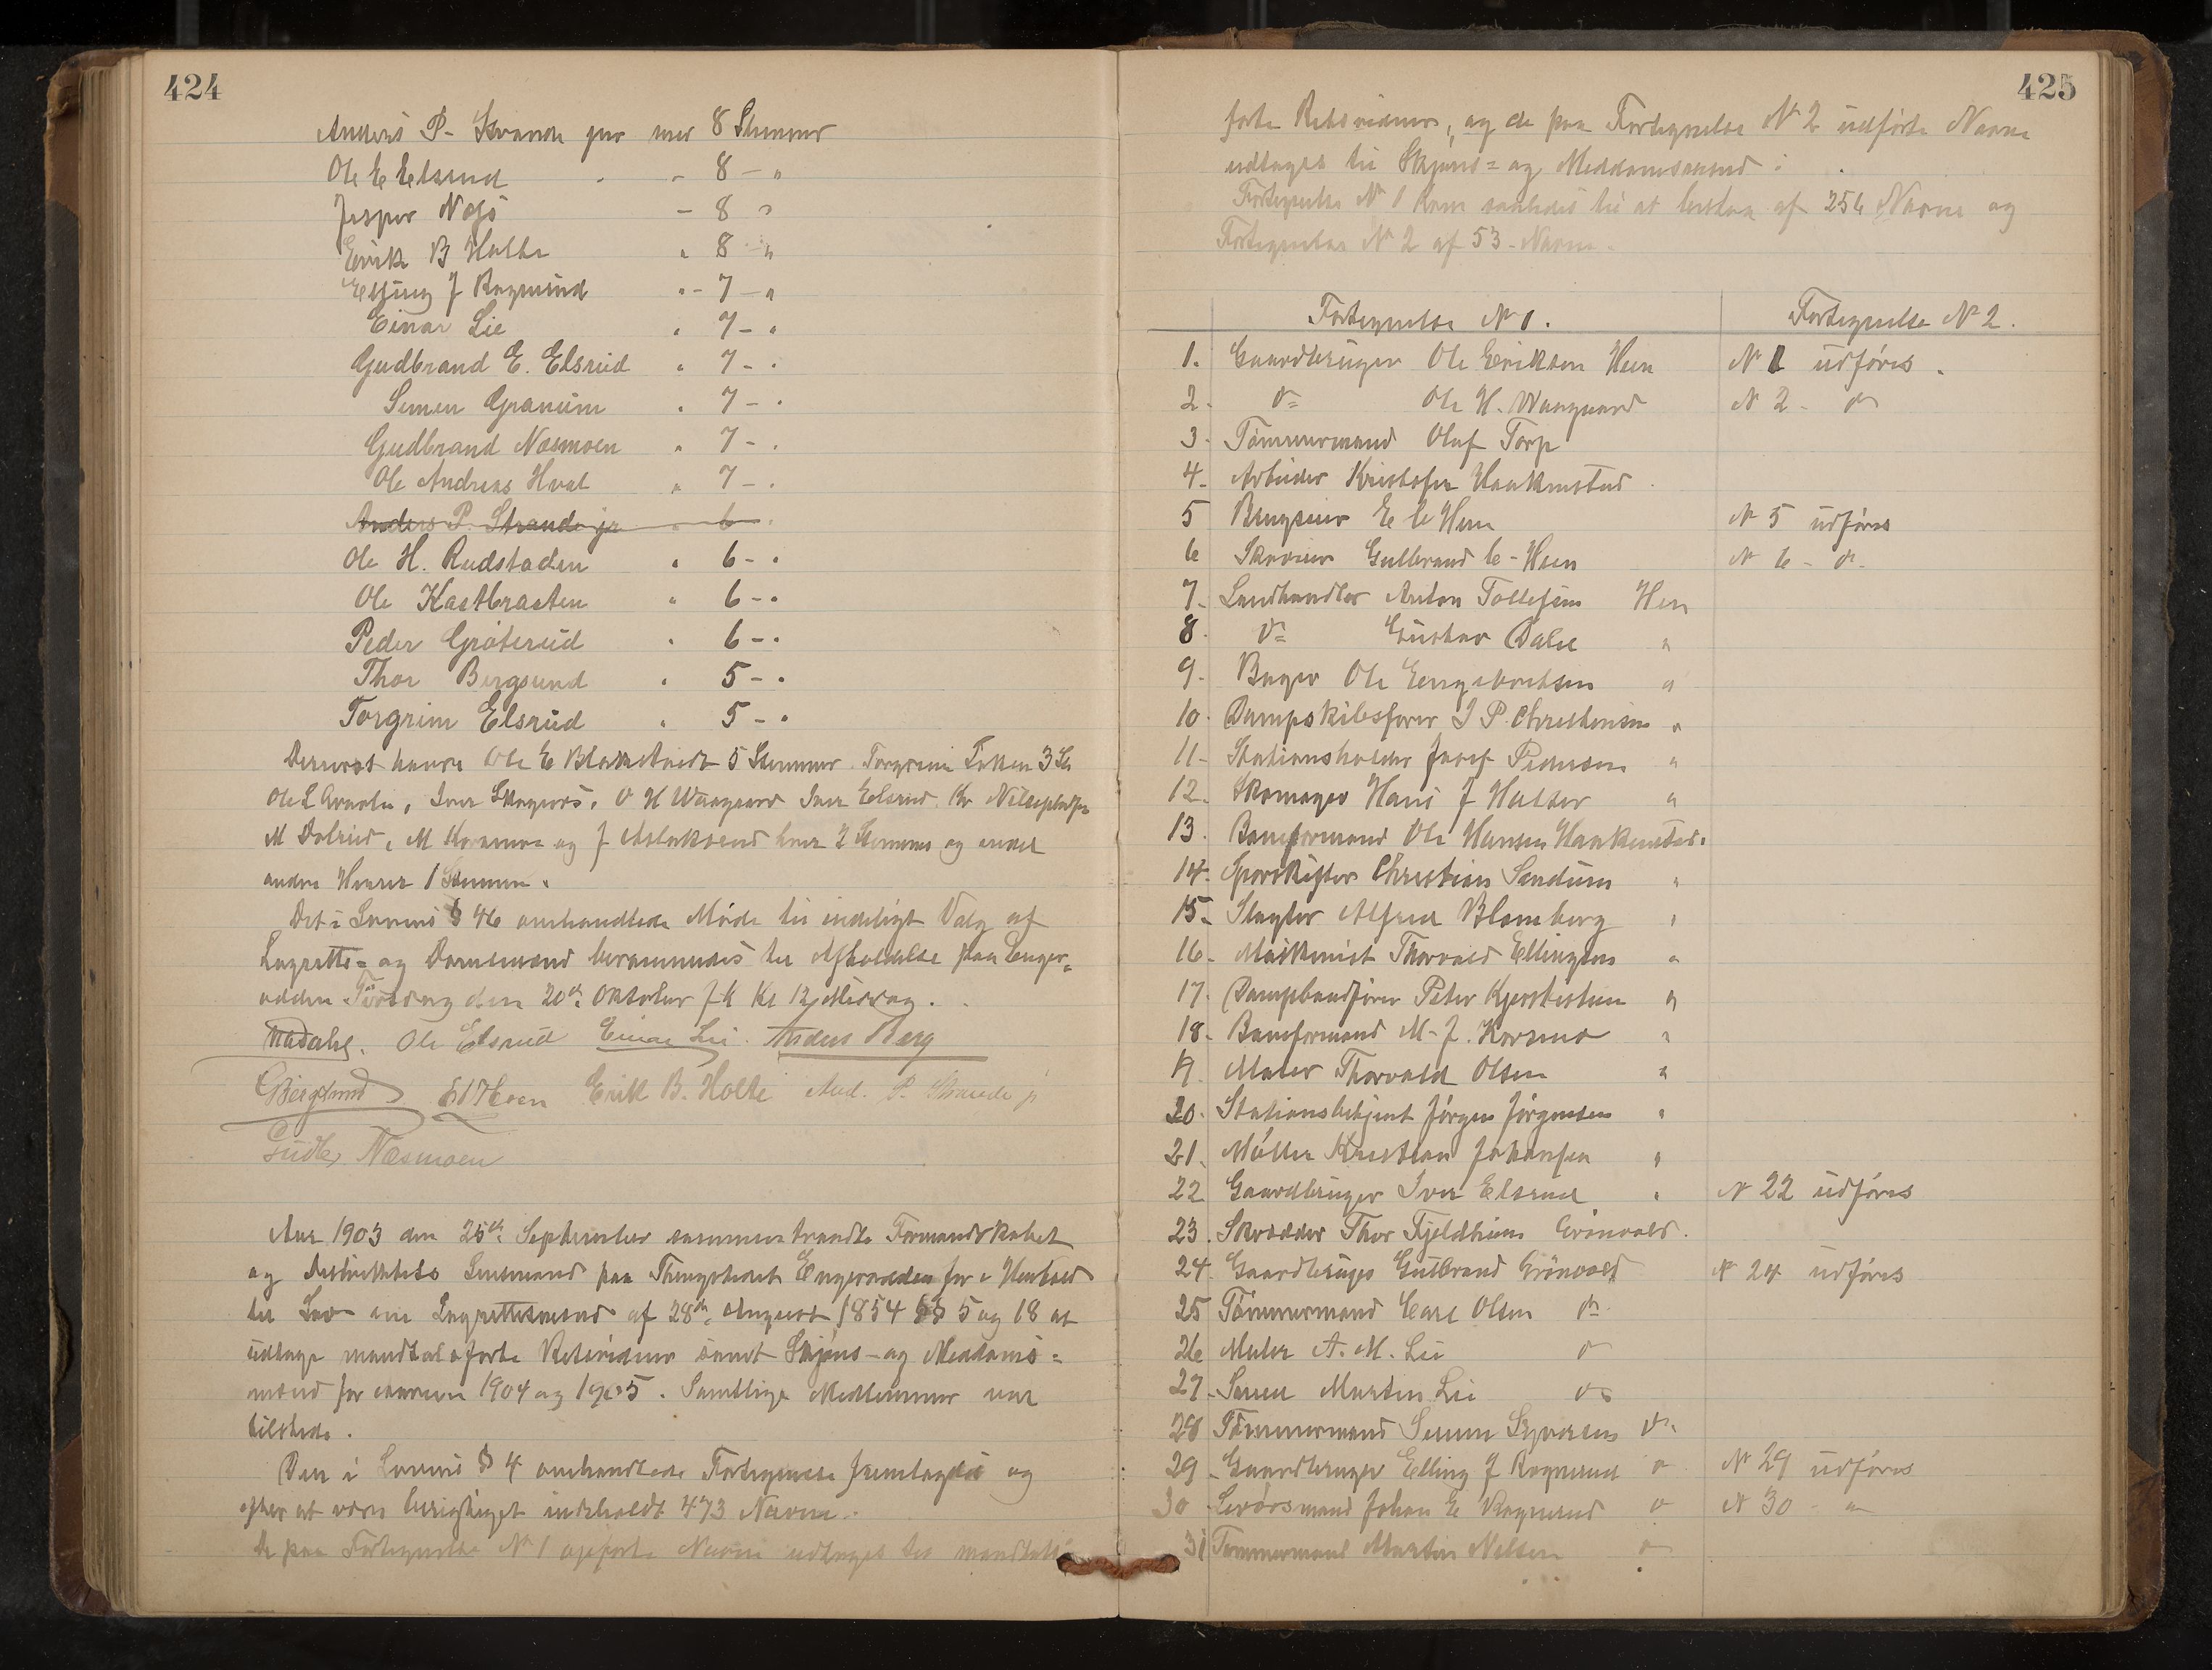 424
Anders P. Strande jnr med 8 Stemmer
Ole E Elsrud - 8 - "
Jesper Næs - 8 "
Erik B Holte " 8 - "
Elling J Ragnrud " - 7 - "
Einar Lie " 7 - "
Gudbrand E. Elsrud " 7 - "
Simen Granum " 7 - "
Gudbrand Næsmoen " 7 - "
Ole Andreas Hval " 7 - "
Anders P. Strande jr " 6 "
Ole H. Rudstaden " 6 - "
Ole Kastbraaten " 6 - "
Peder Gröterud " 6 - "
Thor Bergsund " 5 - "
Torgrim Elsrud " 5 - "
Dernæst havde Ole E Blakstvedt 5 Stemmer Torgrim 3 St
Ole L Iver O H Waagaard Iver Elsrud Kr
M Dalrud, M Korsmo og J hver 2 Stemmer og endel
andre Herrer 1 Stemme.
Det i Lovens § 46 omhandlede Møde til endeligt Valg af
Lagrette- og Domsmænd berammedes til Afholdelse paa Enger-
odden Törsdag den 20de Oktober f k Kl 12 Middag.
Ole Elsrud Einar Lie. Anders Berg
GBergsund E Hoen Erik B. Holte And. P. Strande jr
Gudbr Næsmoen
Aar 1903 den 25de September sammentraadte Formandskabet
og Distriktets Lensmand paa Thingstedet Engerodden for i Henhold
til Lov om Lagrettesmænd af 28de August 1854 §§ 5 og 18 at
udtage mandtalsførte Retsvidner samt Skjøns- og Meddoms-
mænd for aarene 1904 og 1905. Samtlige Medlemmer var
tilstede.
Den i Lovens § 4 omhandlede Fortegnelse fremlagdes og
efter at være berigtiget indeholdt 473 Navne.
De paa Fortegnelse No 1 opførte Navne udtages til mandtals-
425
førte Retsvidner, og de paa Fortegnelse No 2 udførte Navne
udtages til Skjøns- og Meddomsmænd:
Fortegnelse No 1 kom saaledes til at bestaa af 256 Navne og
Fortegnelse No 2 af 53 Navne.
Fortegnelse No 1. Fortegnelse No 2.
1. Gaardbruger Ole Eriksen Heen No 1 udføres.
2. do Ole H. Waagaard No 2 - do
3. Tømmermand Oluf Torp
4. Arbeider Kristofer Haakenstad
5 E E Heen No 5 udføres
6 Gulbrand E. Heen No 6 - do
7. Landhandler Anton Tollefsen Hen
8. do Gustav Dahl "
9. Bager Ole Engebretsen "
10. Dampskibsfører I P. Christensen "
11. Stationsholder Josef Pedersen "
12. Skomager Hans J Halser "
13. Baneformand Ole Hansen Haakenstad.
14. Sporskifter Christian Sendum "
15. Slagter Alfred Blomberg "
16. Maskinist Thorvald Ellingsen "
17. Dampbaadfører Peter "
18. Baneformand M. J. Korsmo "
19. Maler Thorvald Olsen "
20. Stationsbetjent Jørgen Jørgensen "
21. Møller Kristian Johansen "
22 Gaardbruger Iver Elsrud " No 22 udføres
23. Skrædder Thor Fjeldheim Grönvold.
24. Gaardbruger Gulbrand Grönvold No 24 udføres
25 Tömmermand Carl Olsen do
26 Maler A. M. Lie do
27. Martin Lie do
28 Tömmermand Simen Syversen do
29. Gaardbruger Elling J Ragnrud do No 29 udføres
30 Johan E Ragnrud do No 30 - do
31 Tømmermand Martin Nilsen do